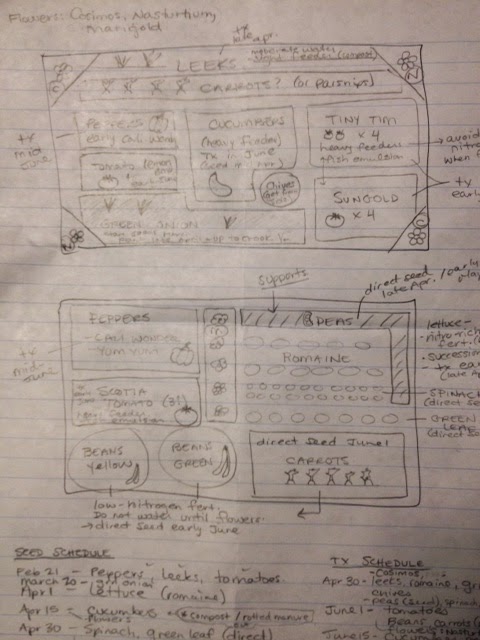 Flowers: Cosimos, Nasturtium,
Marigold
tx
late apr.
moderate water
LEEKS
CARROTS? (or parsnips)
PEPPERS
early Cali wond
tx
mid-
june
TOMATO
CUCUMBERS
(heavy feeder)
TX in June
TINY TIM
x 4
heavy feeders
fish emulsion
→ avoid
nitro
when f
tx
early
chives
SUNGOLD
x 4
GREEN ONION
supports
direct seed
late Apr. / early
PEPPERS
- CALI WONDER
- YUM YUM
tx
mid-
june
PEAS
ROMAINE
lettuce -
nitro-rich
fert.
Succession
tx ea
(late Ap
SPINACH
(direct se
GREEN
LEAF
(direct se
SCOTIA
TOMATO (3)
Heavy Feeder
fish emulsion
BEANS
yellow
BEANS
GREEN
direct seed June 1
CARROTS
low-nitrogen fert.
Do not water until flowers.
→ direct seed early June
SEED SCHEDULE
Feb 21 - Peppers, leeks, tomatoes
march 20 - grn onion
Apr 1 - Lettuce (romaine)
Apr 15 - Cucumbers
flowers
* compost / rotted manure
Apr 30 - Spinach, green leaf (direct)
TX SCHEDULE
- Cosimos,
Apr 30 - leeks, romaine, gr
chives
- peas (seed), spinach
June 1 - tomatoes
Beans carrots
flowers
June 15